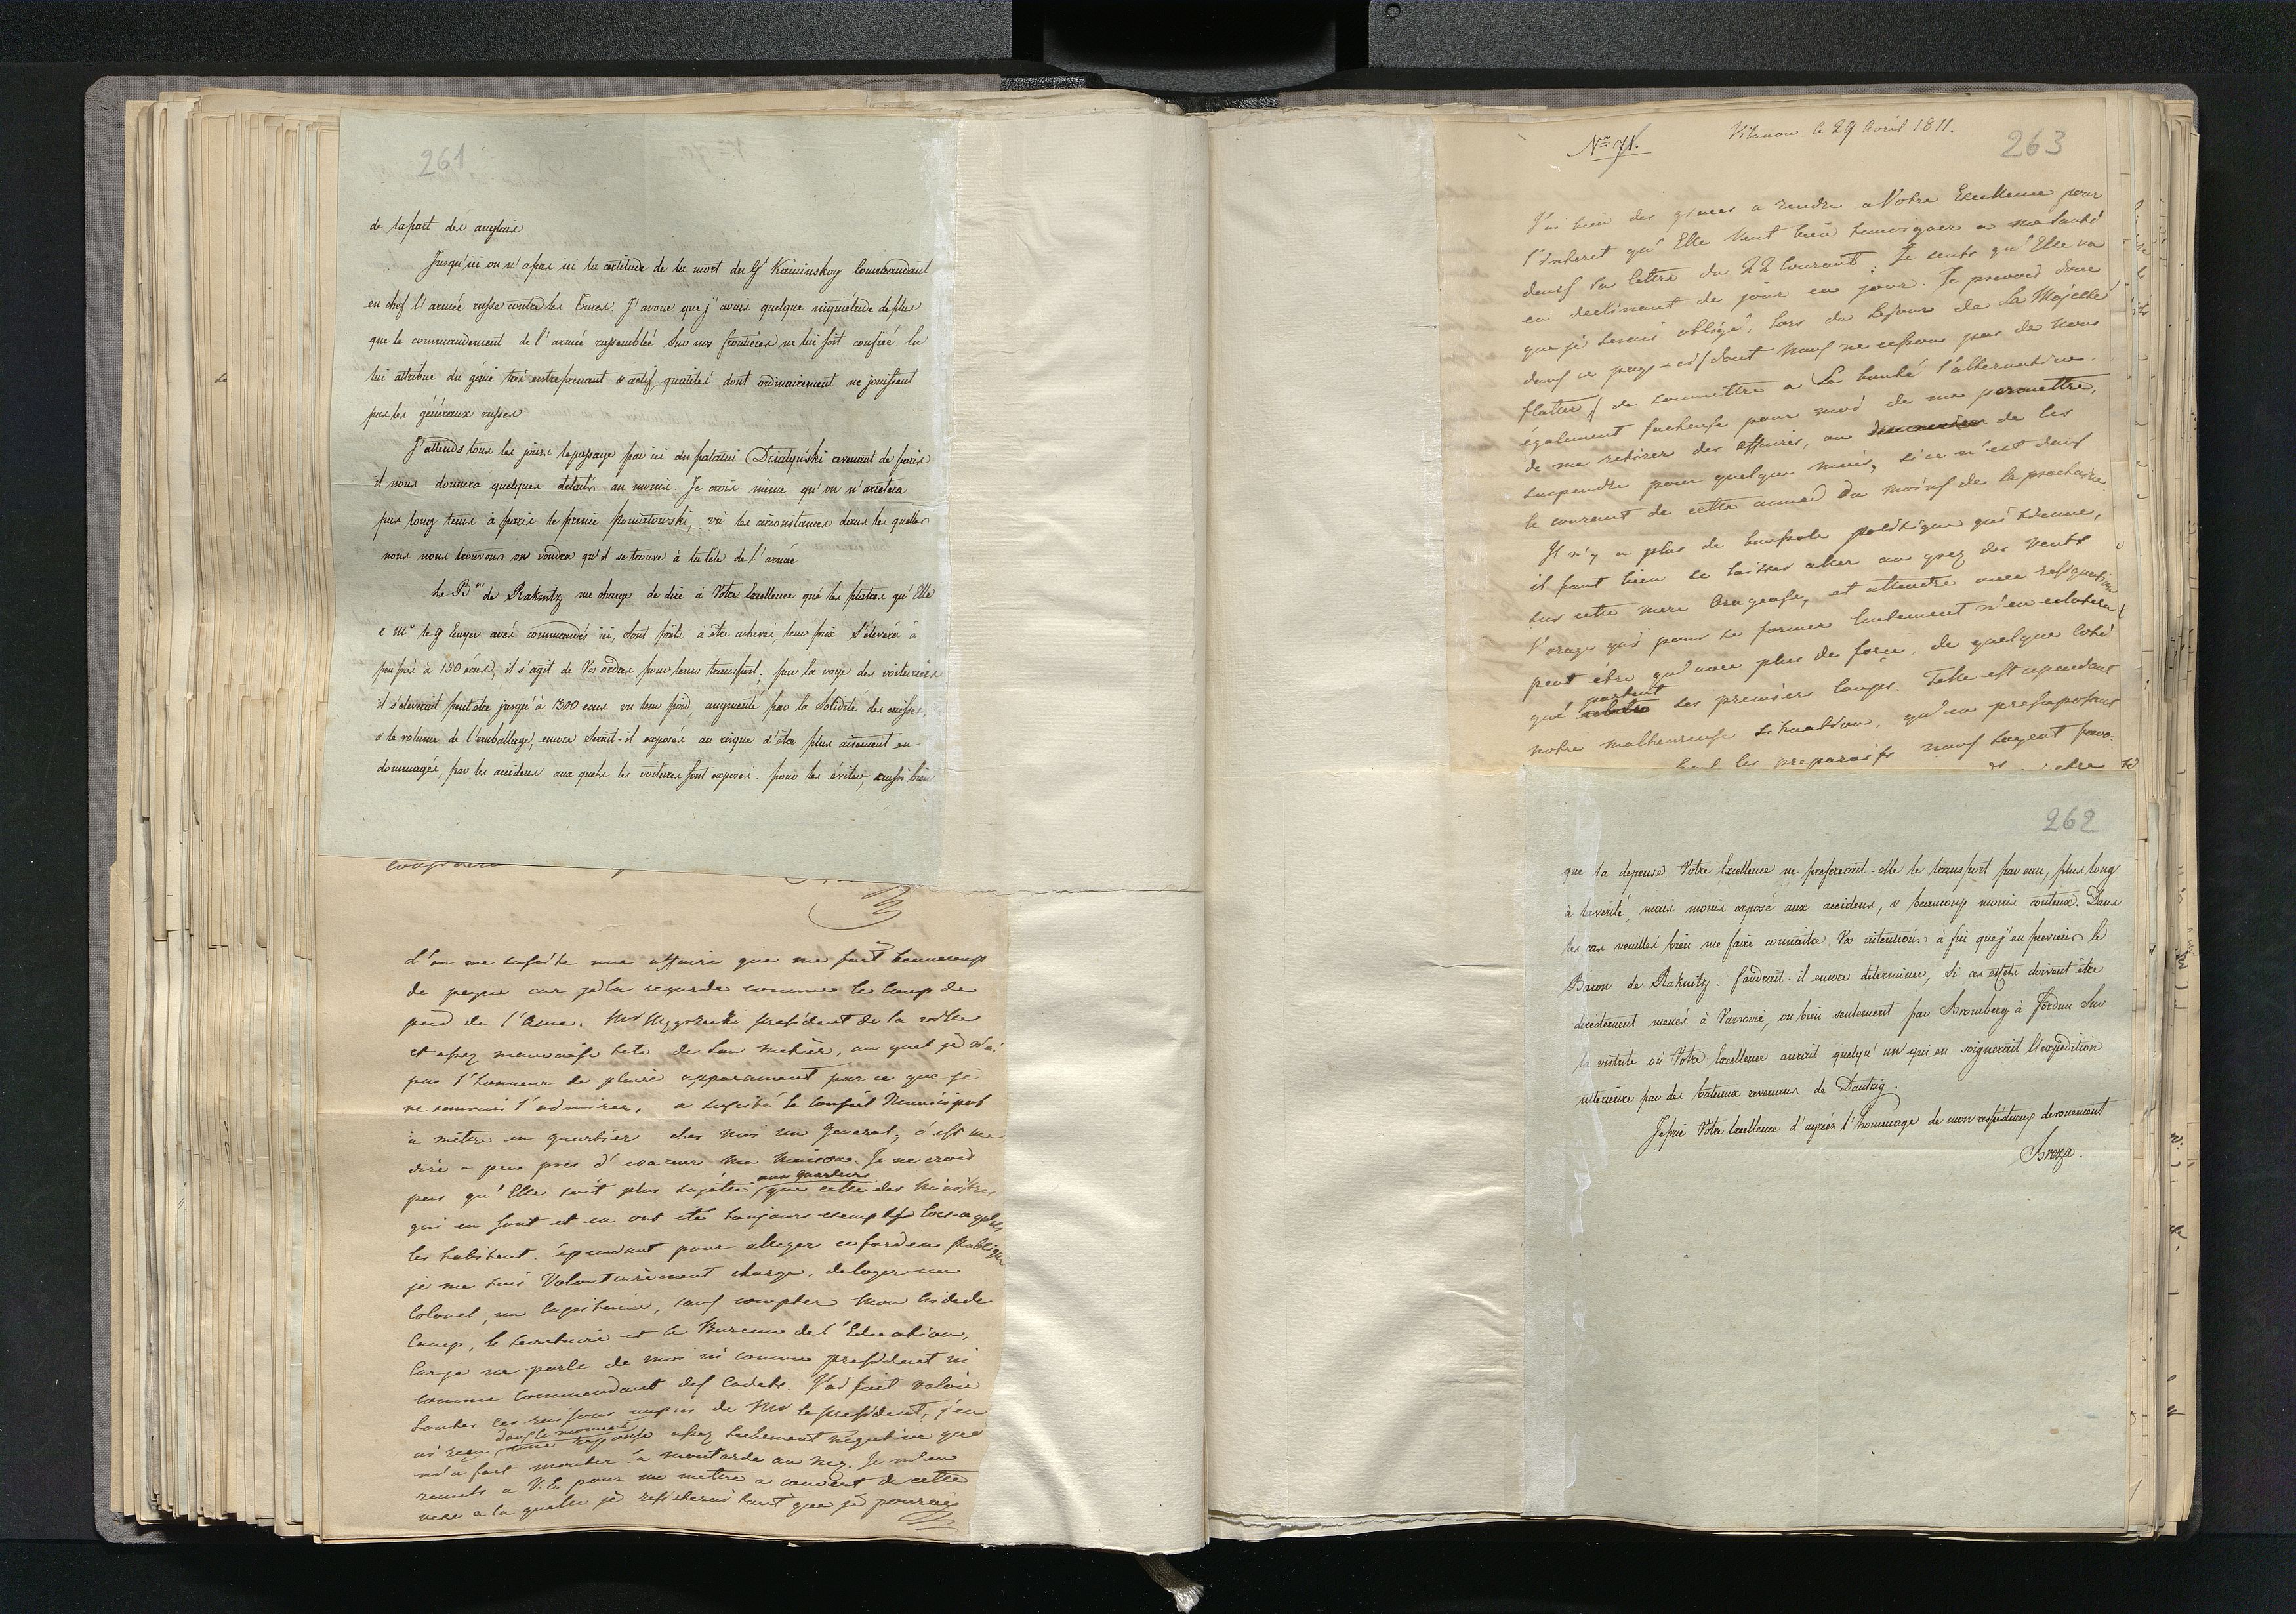 261
de la part des anglais
Jusqu'ici on n'a pas ici la certitude de la mort du Gl Kaminskoy Commandant
en chef l'armée russe contre les Turcs J'avoue que j'avais quelque inquiétude de plus
que le commandement de l'armée rassemblée Sur nos frontières ne lui soit confiée. On
lui attribue du génie très entreprenant & actif, qualités dont ordinairement ne jouissent
pas les généraux russes
J'attends tous les jours le passage par ici du palatin Dzialynski revenant de paris
il nous donnera quelques détails au moins. Je crois même qu'on n'arretera
pas long tems à paris le prince Poniatowski, vû les circonstances dans les quelles
nous nous trouvons on voudra qu'il se trouve à la tête de l'armée
Le Bon de Raknitz me charge de dire à Votre Excellence que les platres qu'Elle
& Mr le g avés commandés ici, Sont prêts à être achevés, leur prix S'élevera à
peu près à 150 écus, il s'agit de Vos ordres pour leur transport; par la voye des voituriers
il s'eleverait peutetre jusqu'à 1300 ecus vu leur poid, augmenté par la Solidité des caisses,
& le volume de l'emballage, encore Serait-il exposés au risque d'être plus aisement en-
dommagés, par les accidens aux quels les voitures sont exposés. pour les éviter, aussi bien
L'on me suscite une affaire qui me fait beaucoup
de peyne car je la regarde comme le Coup de
pied de l'Ane. Mr president de la
et assez mauvaise tete de Son metier, au quel je n'ai
pas l'honneur de plaire apparamment parce que je
ne saurais l'admirer, a suscité le Conseil Municipal
a mettre en quartier chez moi un General; c'est me
dire a peu pres d'evacuer ma maison. Je ne crois
pas qu'Elle soit plus sujette aux quartiers que celle des Ministres
qui en sont et en ont été toujours exempts lorsqu'ils
les habitent. Cependant pour alleger ce fardeau publique
je me suis Volontairement charge, de loger un
Colonel, un Capitaine, sans compter mon Aide de
Camp, le Secretaire et le Bureau de l'Education,
Car je ne parle de moi ni comme president ni
comme Commendant des Cadets. J'ai fait valoir
toutes ces raisons aupres de Mr le president, j'en
ai reçu dans le moment une reponse assez sechement negative qui
m'a fait monter la moutarde au nez. Je m'en
remets a V.E. pour me mettre a couvert de cette
a la quelle je resisterai tant que je pourai
No 71.
Vilanow le 29 Avril 1811.
263
J'ai bien des graces a rendre a Votre Excellence pour
l'interet qu'Elle Veut bien temoigner a ma Santé
dans Sa lettre du 22 Courant; Je sents qu'Elle va
en declinant de jour en jour. Je prevois donc
que je serais obligé, lors du Sejour de Sa Majesté
dans ce pays-ci (dont nous ne cessons pas de nous
flatter) de soumettre a Sa bonté l'alternative
également facheuse pour moi de me permettre,
de me retirer des affaires, ou de les
suspendre pour quelque mois, si ce n'est dans
le courant de cette année du moins de la prochaine.
Il n'y a plus de boussole politique qui tienne,
il faut bien se laisser aller au grez des Vents
sur cette mere Orageuse, et attendre avec resignation
l'orage qui pour se former lentement n'en eclatera
peut être qu'avec plus de force, de quelque Coté
que partent ses premiers Coups. Telle est cependant
notre malheureuse situation, qu'en presuposant
les preparatifs nous soyent favo-
262
que la depense. Votre Excellence ne prefererait-elle le transport par eau, plus long
à la verité, mais moins exposé aux accidens, & beaucoup moins couteux. Dans
ces cas veuillés bien me faire connaitre, Vos intentions à fin que j'en previenns le
Baron de Raknitz. faudrait-il encore determiner, Si ces effets doivent être
directement menés à Varsovie, ou bien seulement par Bromberg à Fordon Sur
la vistule où Votre Excellence aurait quelqu'un qui en soignerait l'expedition
ulterieure par des bateaux revenans de Dantzig.
Je prie Votre Excellence d'agréer l'hommage de mon respectueux devouement
Breza.